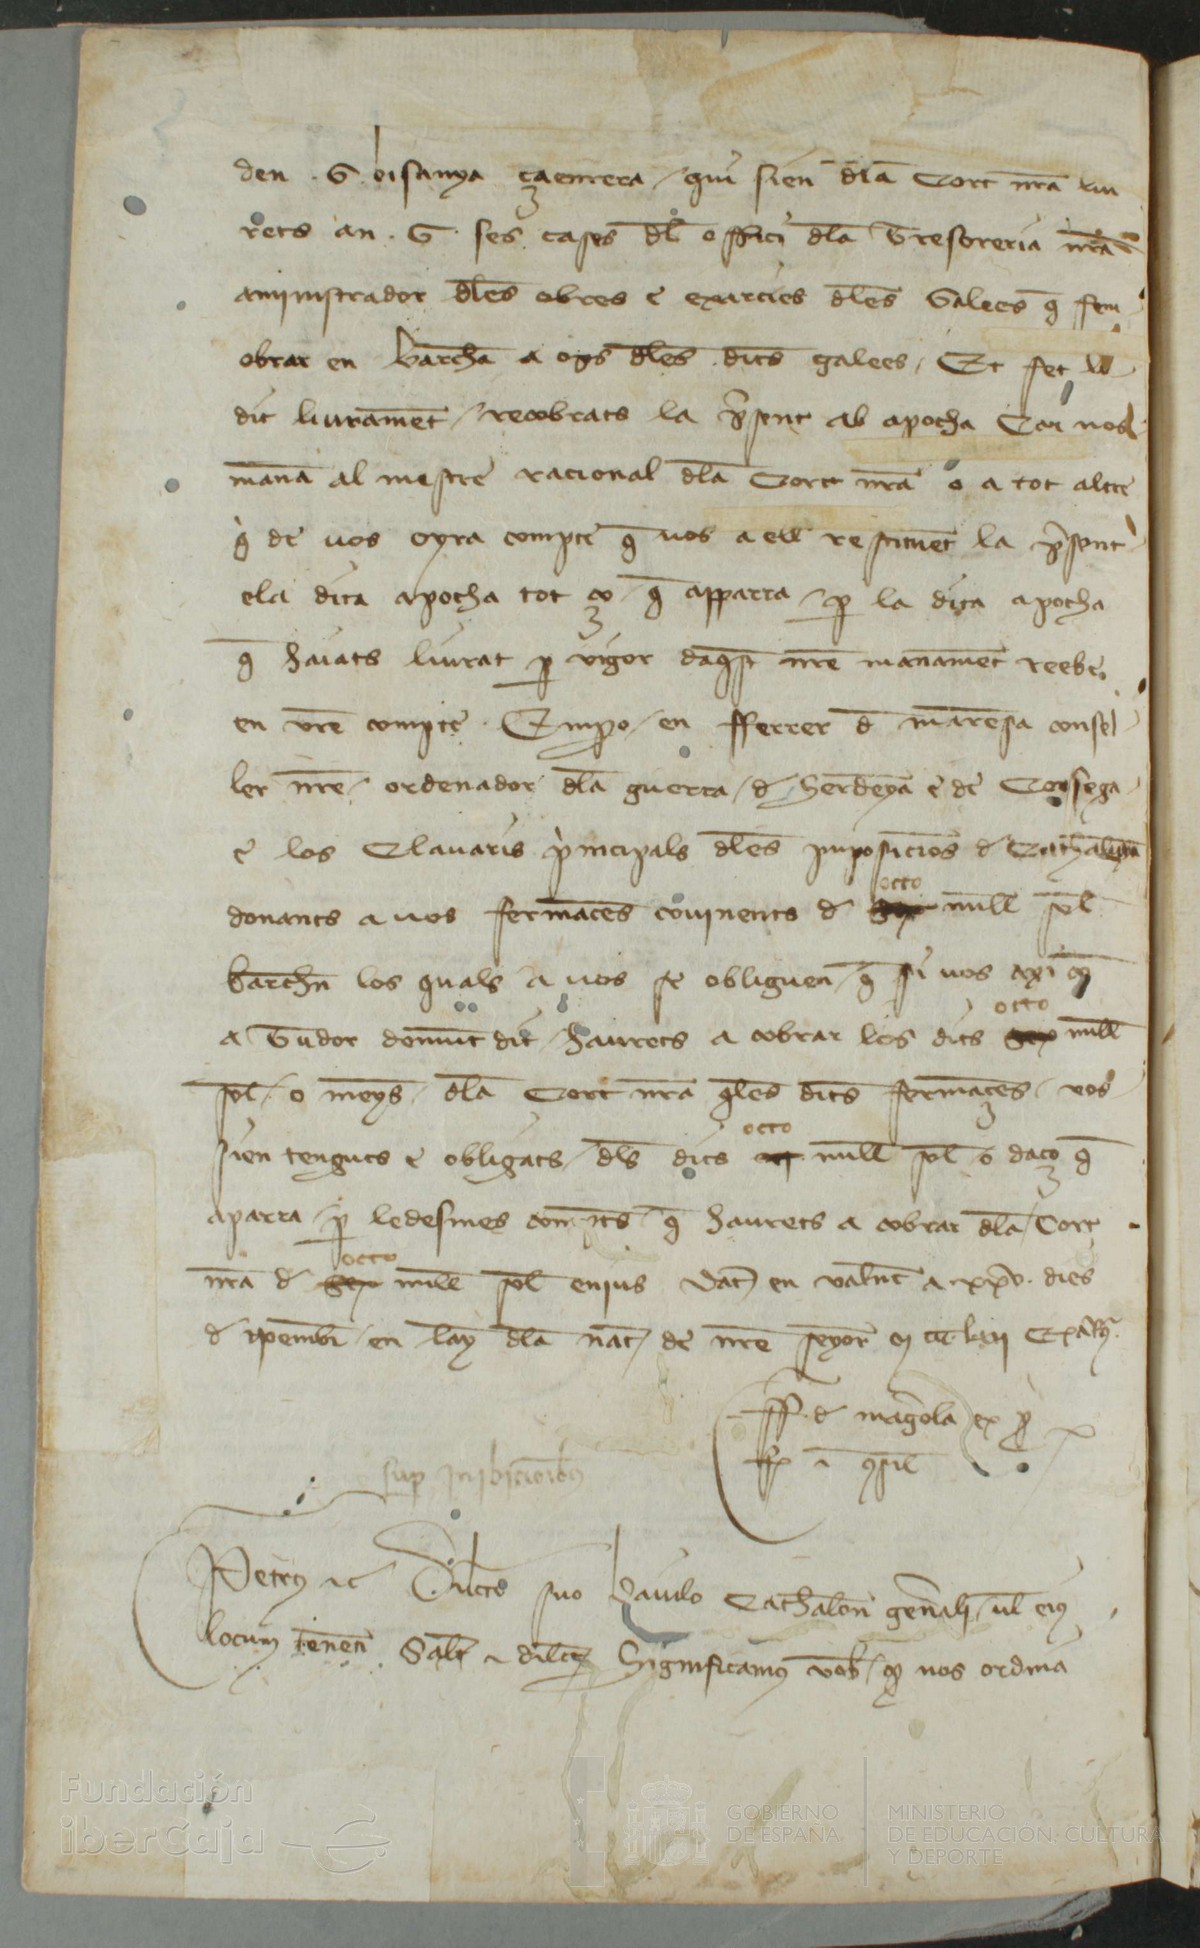 den . G . bisanya çaenrera / qui sien dla Cort nra liu
rets an . G . ses cases dl offici dla Tresoreria nra
aministrador dles obres e exarcies dles Galees q fem
obrar en barchna a ops dles dites galees / Et fet lo
dit liurament / recobrats la present ab apocha Car nos
manam al mestre racional dla Cort nra o a tot altre
q de vos oyra compte q vos a ell restituent la present
e la dita apocha tot ço q apparra p la dita apocha
q haiats liurat p vigor daqst nre manament reebe
en vre compte . Empero / en fferrer d manresa consel
ler nre / ordenador dla guerra / d Serdenya e de Corsega
e los Clauaris principals dles imposicions d Cathalunya
donants a vos fermances couinents d octo mill sol
barchn los quals a vos se obliguen / q si vos axi com
a Tudor demunt dit / haurets a cobrar los dits octo mill
sol / o meys / dla Cort nra qles dites fermances / vos
sien tenguts e obligats / dls dits octo mill sol o daço q
aparra p ledesmes comptes q haurets a cobrar dla Cort
nra d octo mill sol enjus Dat en valenc a xxv . dies
d / en lany dla nat / de nre senyor
ff . d magrola ex p
 
sup inhibicionibus
Petrus etc Dilecto suo baiulo Cathalon generali / vl eius
locum tenen Salt e dilcem Significamus vob / q nos ordina
Fundación
iberCaja
GOBIERNO
DE ESPAÑA
MINISTERIO
DE EDUCACIÓN, CULTURA
Y DEPORTE